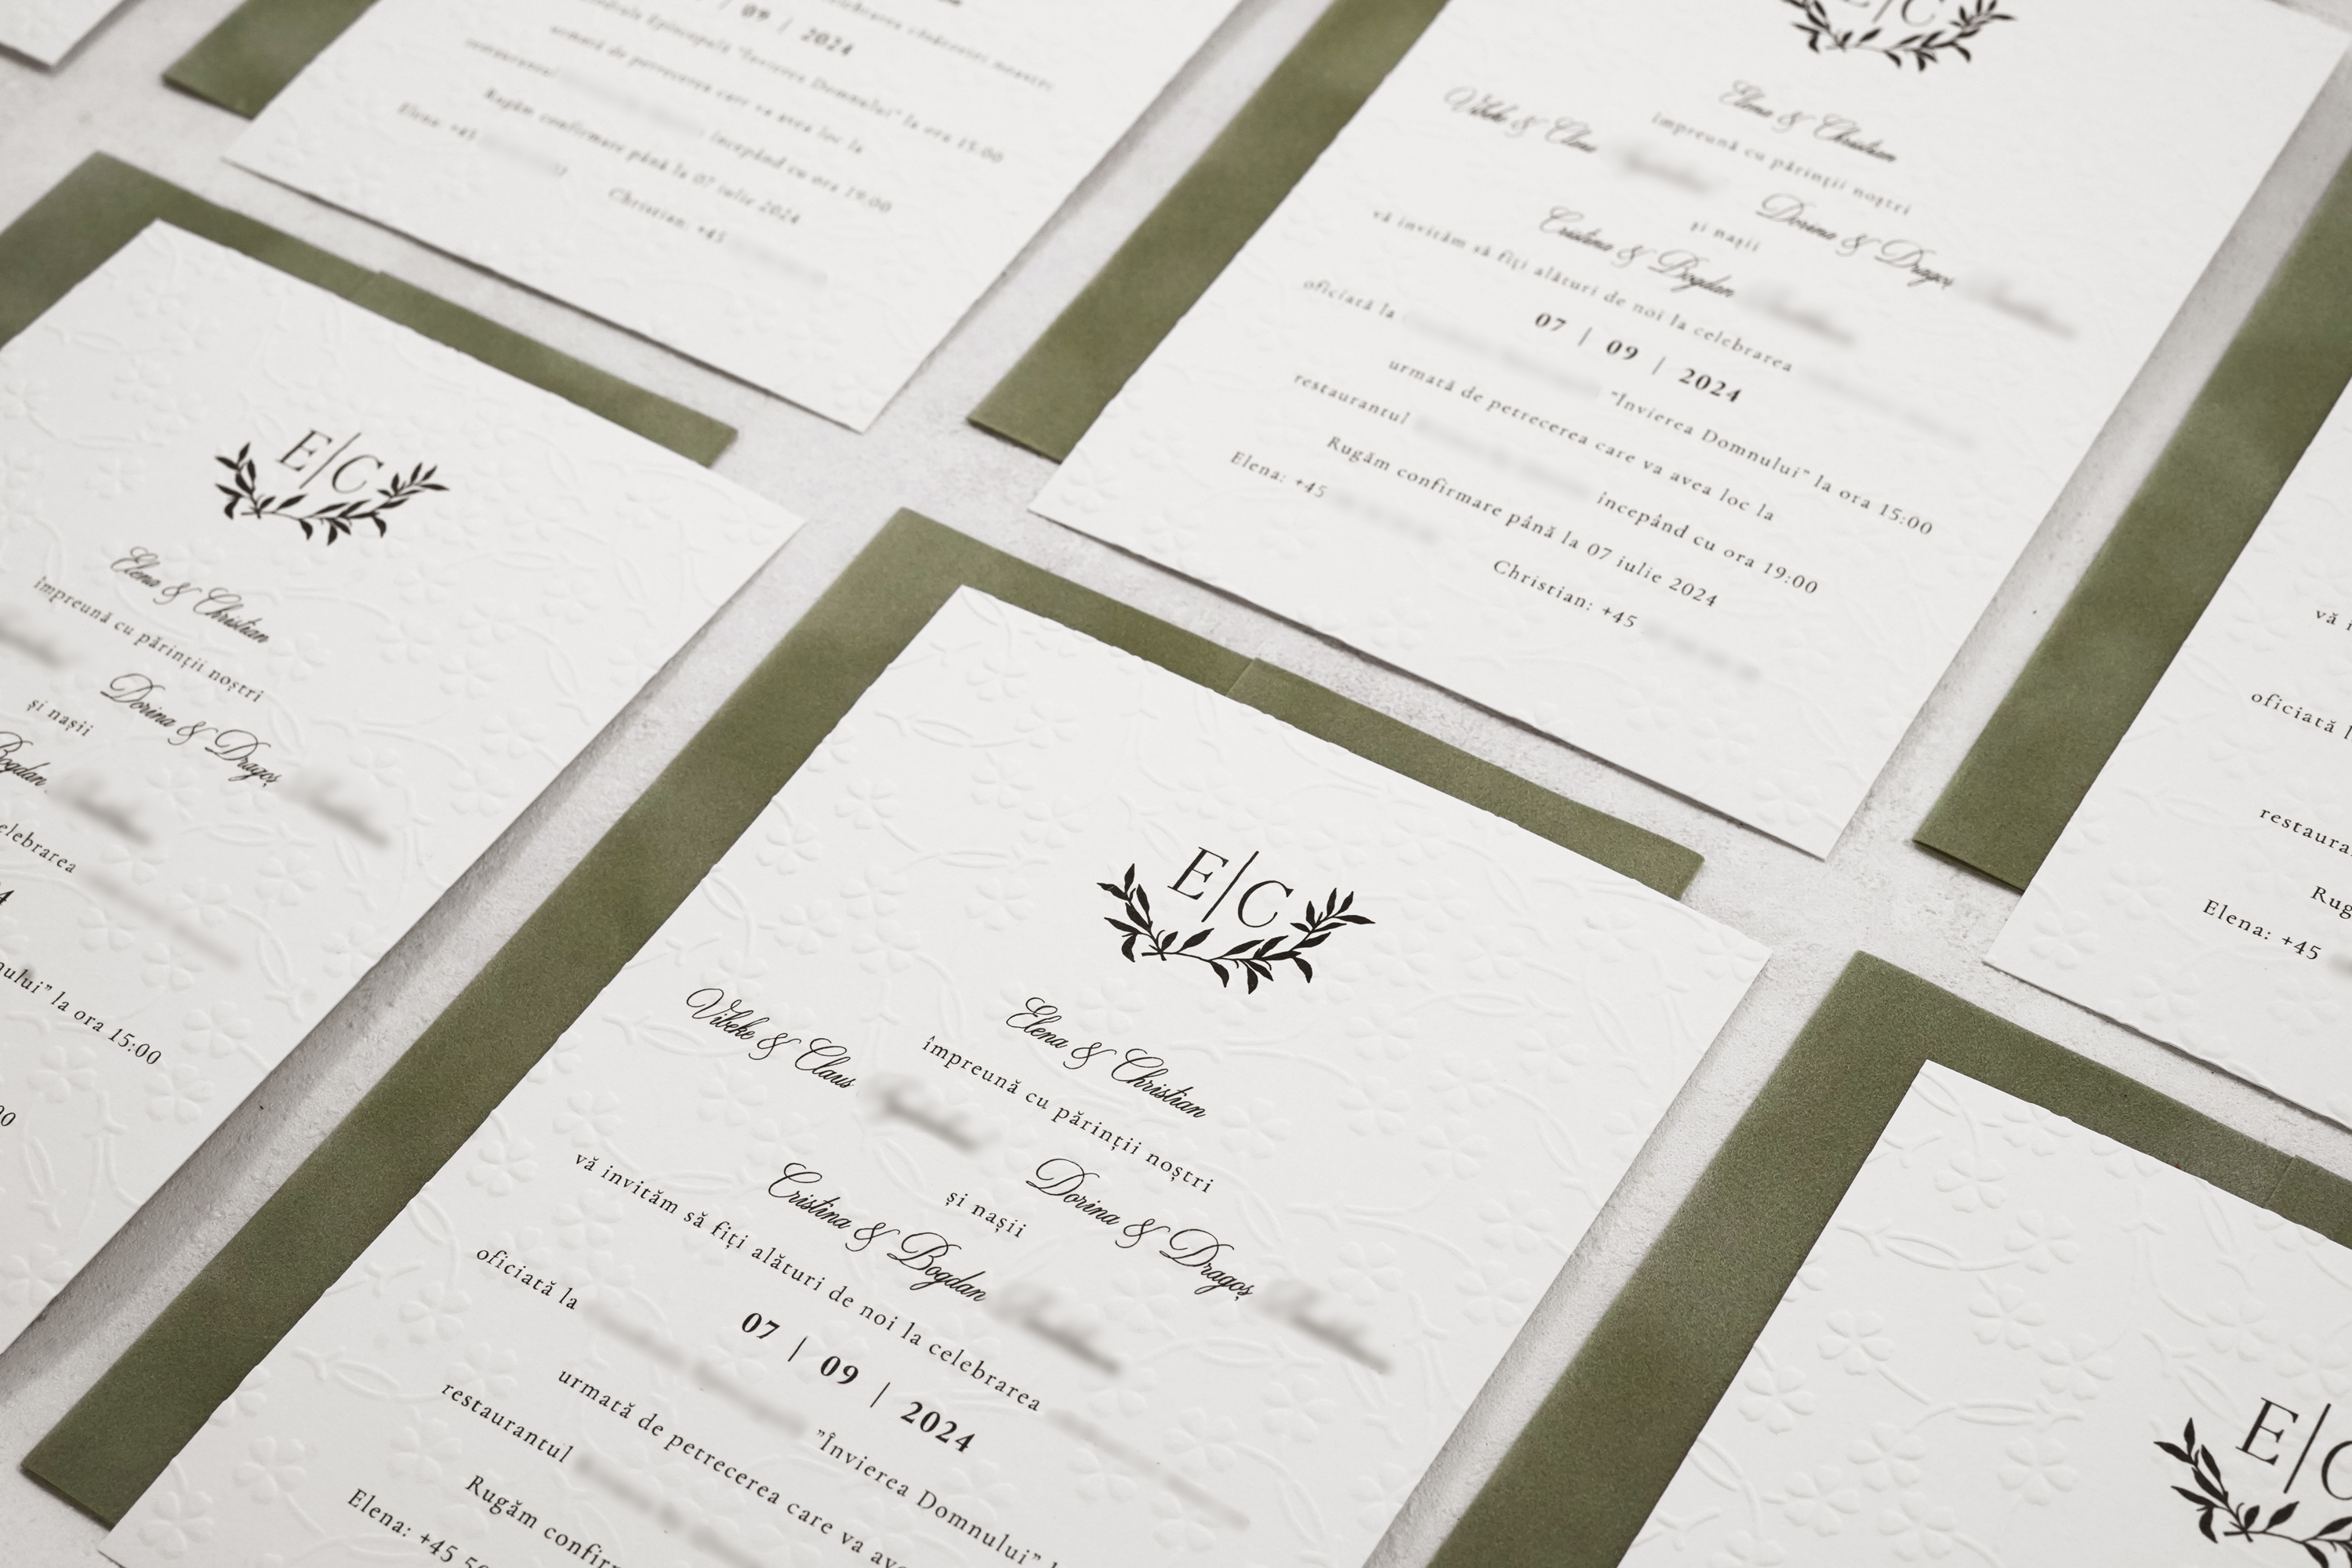 09 | 2024
Episcopală "Învierea Domnului" la ora 15:00
urmată de petrecerea care va avea loc la
restaurantul începând cu ora 19:00
Rugăm confirmare până la 07 iulie 2024
Elena: +45 Christian: +45
E|C
Elena & Christian
împreună cu părinții noștri
Vibeke & Claus Dorina & Dragoș
și nașii
Cristina & Bogdan
vă invităm să fiți alături de noi la celebrarea
07 | 09 | 2024
oficiată la "Învierea Domnului" la ora 15:00
urmată de petrecerea care va avea loc la
restaurantul începând cu ora 19:00
Rugăm confirmare până la 07 iulie 2024
Elena: +45 Christian: +45
E|C
Elena & Christian
împreună cu părinții noștri
Dorina & Dragoș
și nașii
Bogdan
celebrarea
la ora 15:00
E|C
Elena & Christian
împreună cu părinții noștri
Vibeke & Claus Dorina & Dragoș
și nașii
Cristina & Bogdan
vă invităm să fiți alături de noi la celebrarea
07 | 09 | 2024
oficiată la "Învierea Domnului"
urmată de petrecerea care va
restaurantul
Rugăm
Elena: +45
vă
oficiată
Elena: +45
E|C